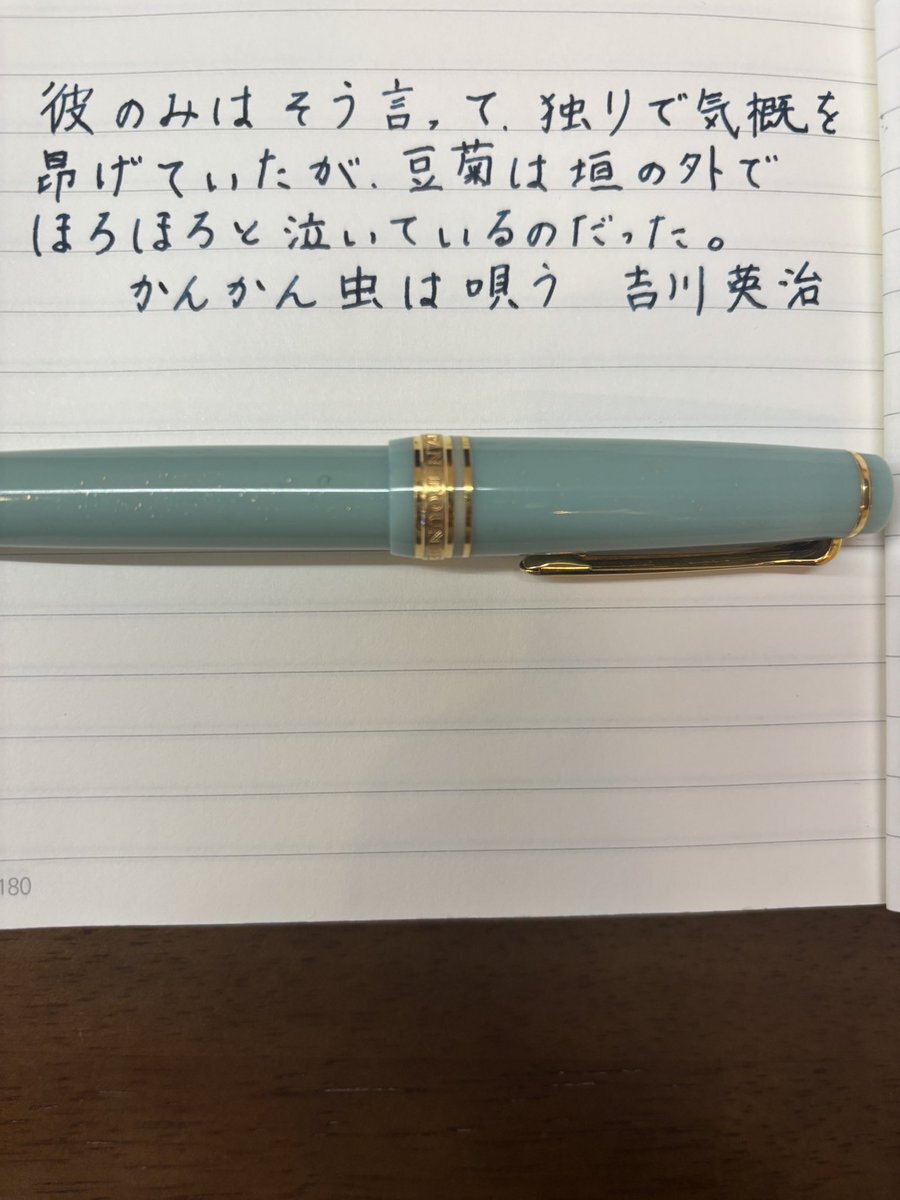 彼のみはそう言って、独りで気概を
昂げていたが、豆菊は垣の外で
ほろほろと泣いているのだった。
かんかん虫は唄う 吉川英治
180